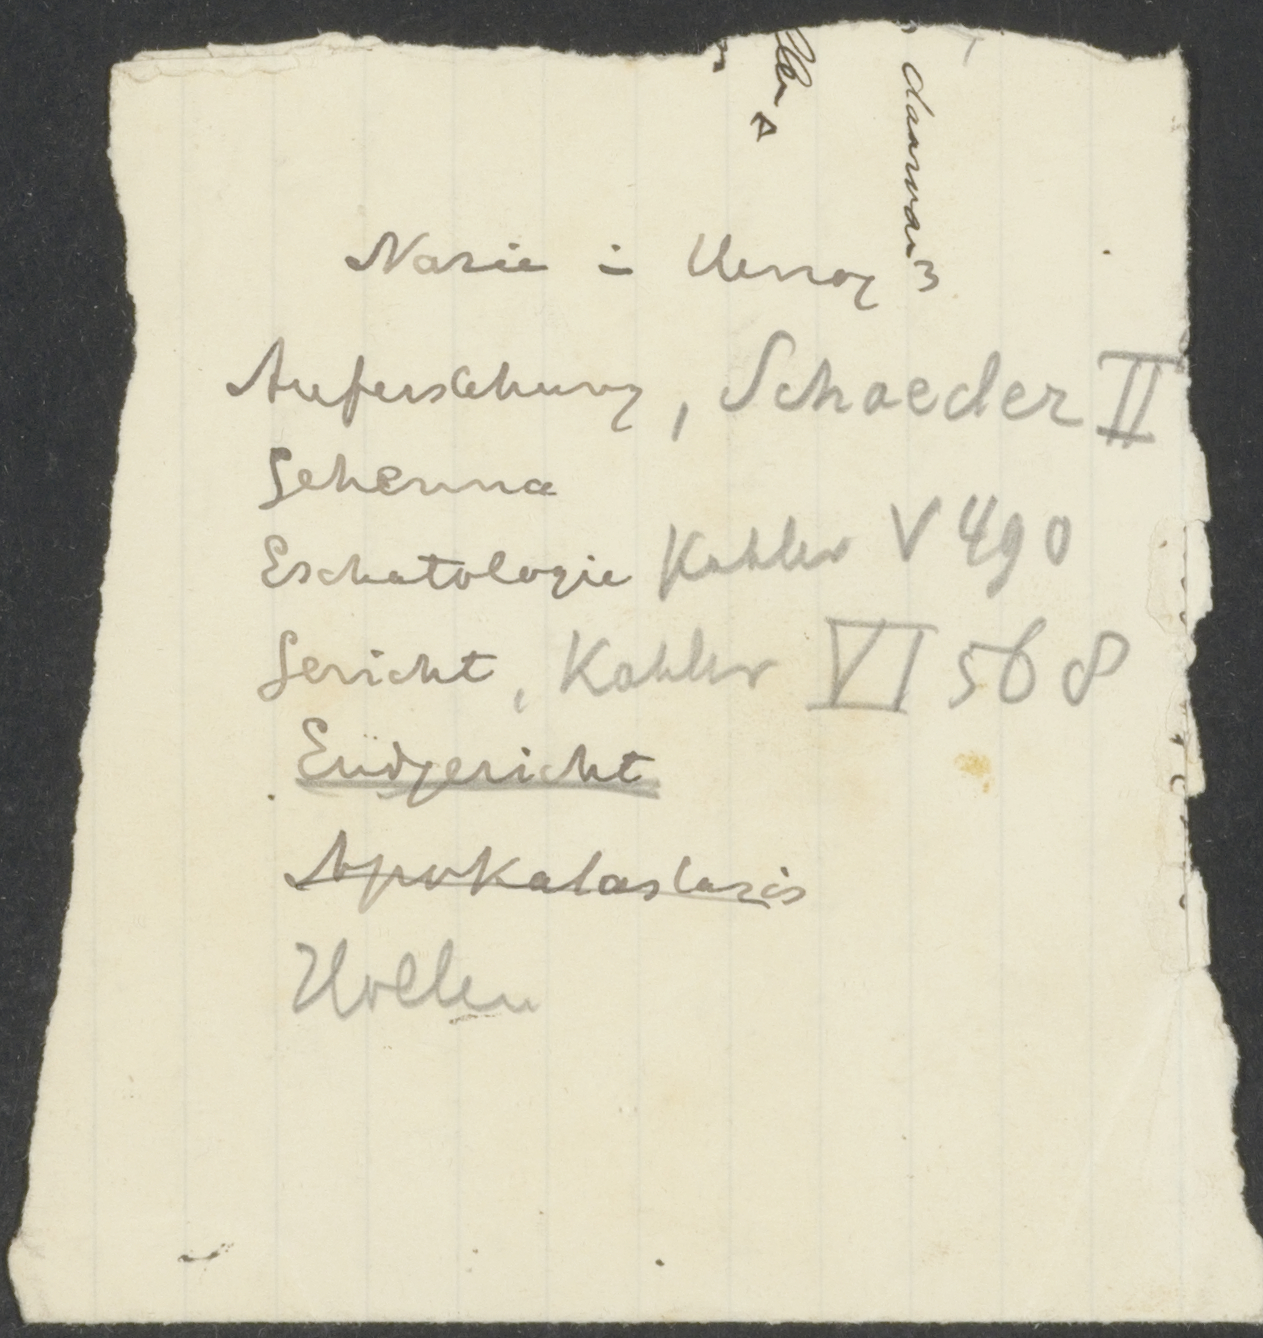 daarvan
Nazie in Herzog
Auferstehung, Schaeder II
Gehenna
Eschatologie Kahler V 490
Gericht, Kahler VI 568
Endgericht
Apokatastasis
Hollen